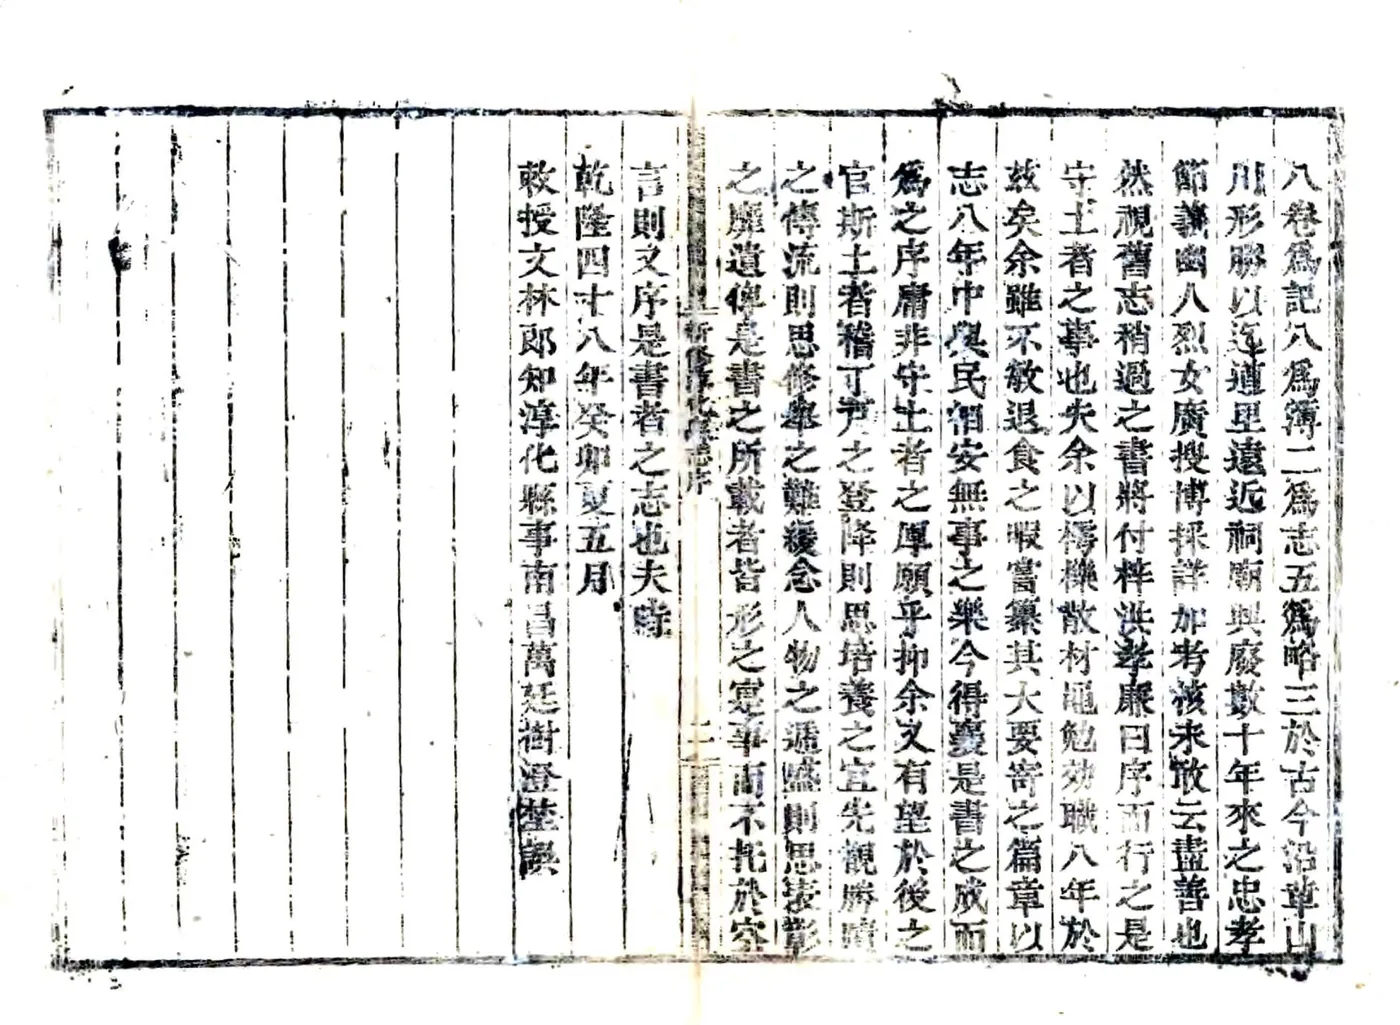 八卷爲記八爲薄二爲志五爲略三於古今沿革山
川形勝以迄道里遠近祠廟興廢數十年來之忠孝
節義幽人烈女廣搜博採詳加考核未敢云盡善也
然視舊志稍過之書將付梓洪孝廉曰序而行之是
守土者之事也夫余以樗櫟散材黽勉効職八年於
茲矣余雖不敏退食之暇嘗纂其大要寄之篇章以
志八年中與民相安無事之樂今得襄是書之成而
爲之序庸非守土者之厚願乎抑余又有望於後之
官斯土者稽丁戸之登降則思培養之宜先觀勝蹟
之傳流則思修舉之難緩念人物之遞盛則思表彰
之靡遺俾是書之所載者皆形之寔事而不托於空
新修淳化縣志序
二
言則又序是書者之志也夫時
乾隆四十八年癸卯夏五月
敕授文林郎知淳化縣事南昌萬廷樹澄埜譔